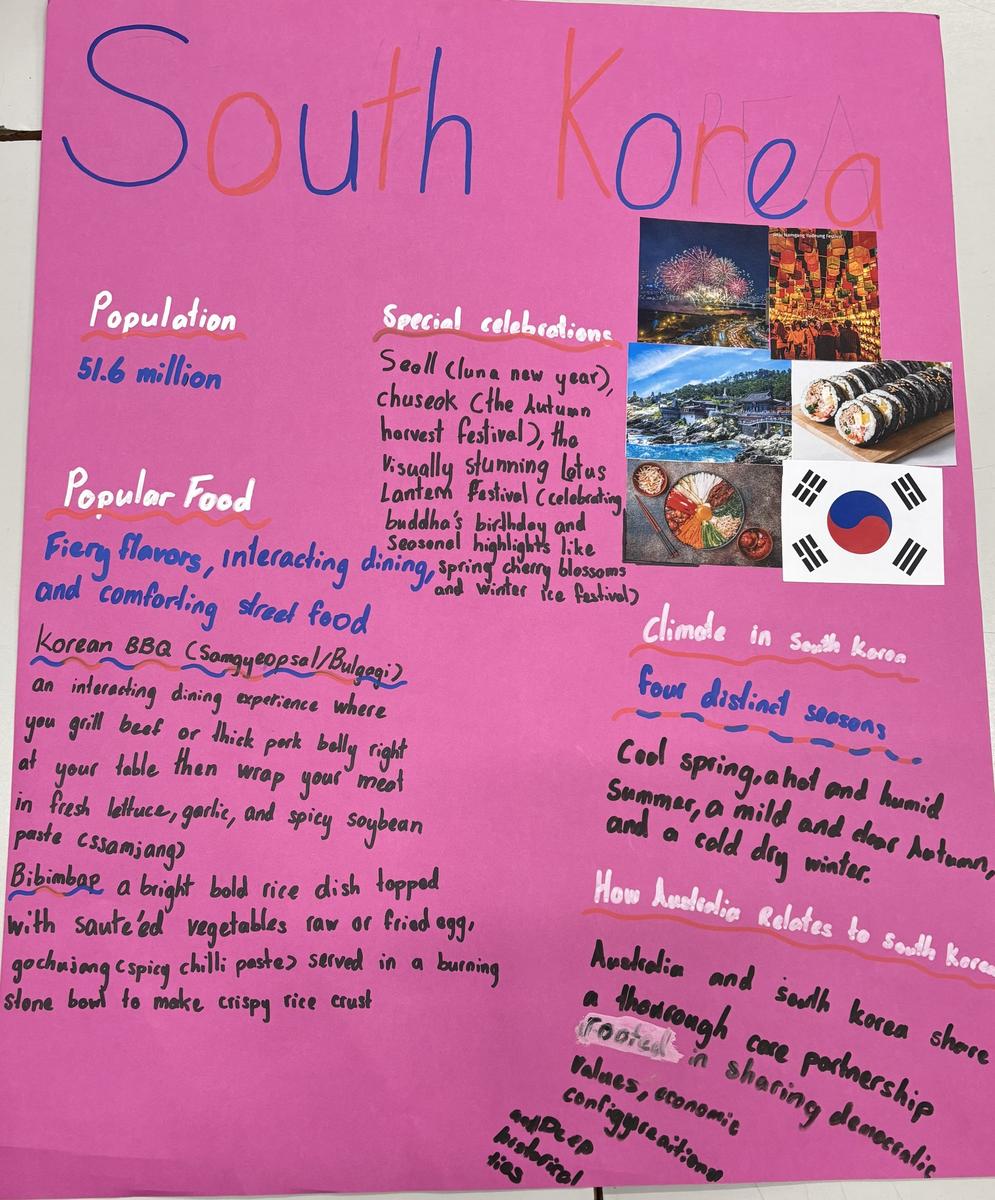 South Korea
REA
Population
51.6 million
Popular Food
Fiery flavors, interacting dining,
and comforting street food
Korean BBQ (Samgyeopsal/Bulgogi)
an interacting dining experience where
you grill beef or thick pork belly right
at your table then wrap your meat
in fresh lettuce, garlic, and spicy soybean
paste (ssamjang)
Bibimbap a bright bold rice dish topped
with sauté'ed vegetables raw or fried egg,
gochujang (spicy chilli paste) served in a burning
stone bowl to make crispy rice crust
Special celebrations
Seoll (luna new year),
chuseok (the Autumn
harvest festival), the
visually stunning Lotus
Lantern Festival (celebrating
buddha's birthday and
seasonal highlights like
spring cherry blossoms
and winter ice festival)
Namgang Yudeung Festival
Climate in South Korea
four distinct seasons
Cool spring, a hot and humid
Summer, a mild and clear Autumn,
and a cold dry winter.
How Australia Relates to South Korea
Australia and south korea share
a thourough core partnership
rooted in sharing democratic
values, economic
and Deep
historical
ties